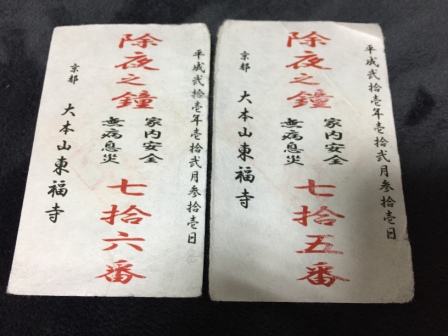 平成弐拾壱年壱拾弐月参拾壱日
除夜之鐘
家内安全
無病息災
七拾五番
京都 大本山東福寺
平成弐拾壱年壱拾弐月参拾壱日
除夜之鐘
家内安全
無病息災
七拾六番
京都 大本山東福寺